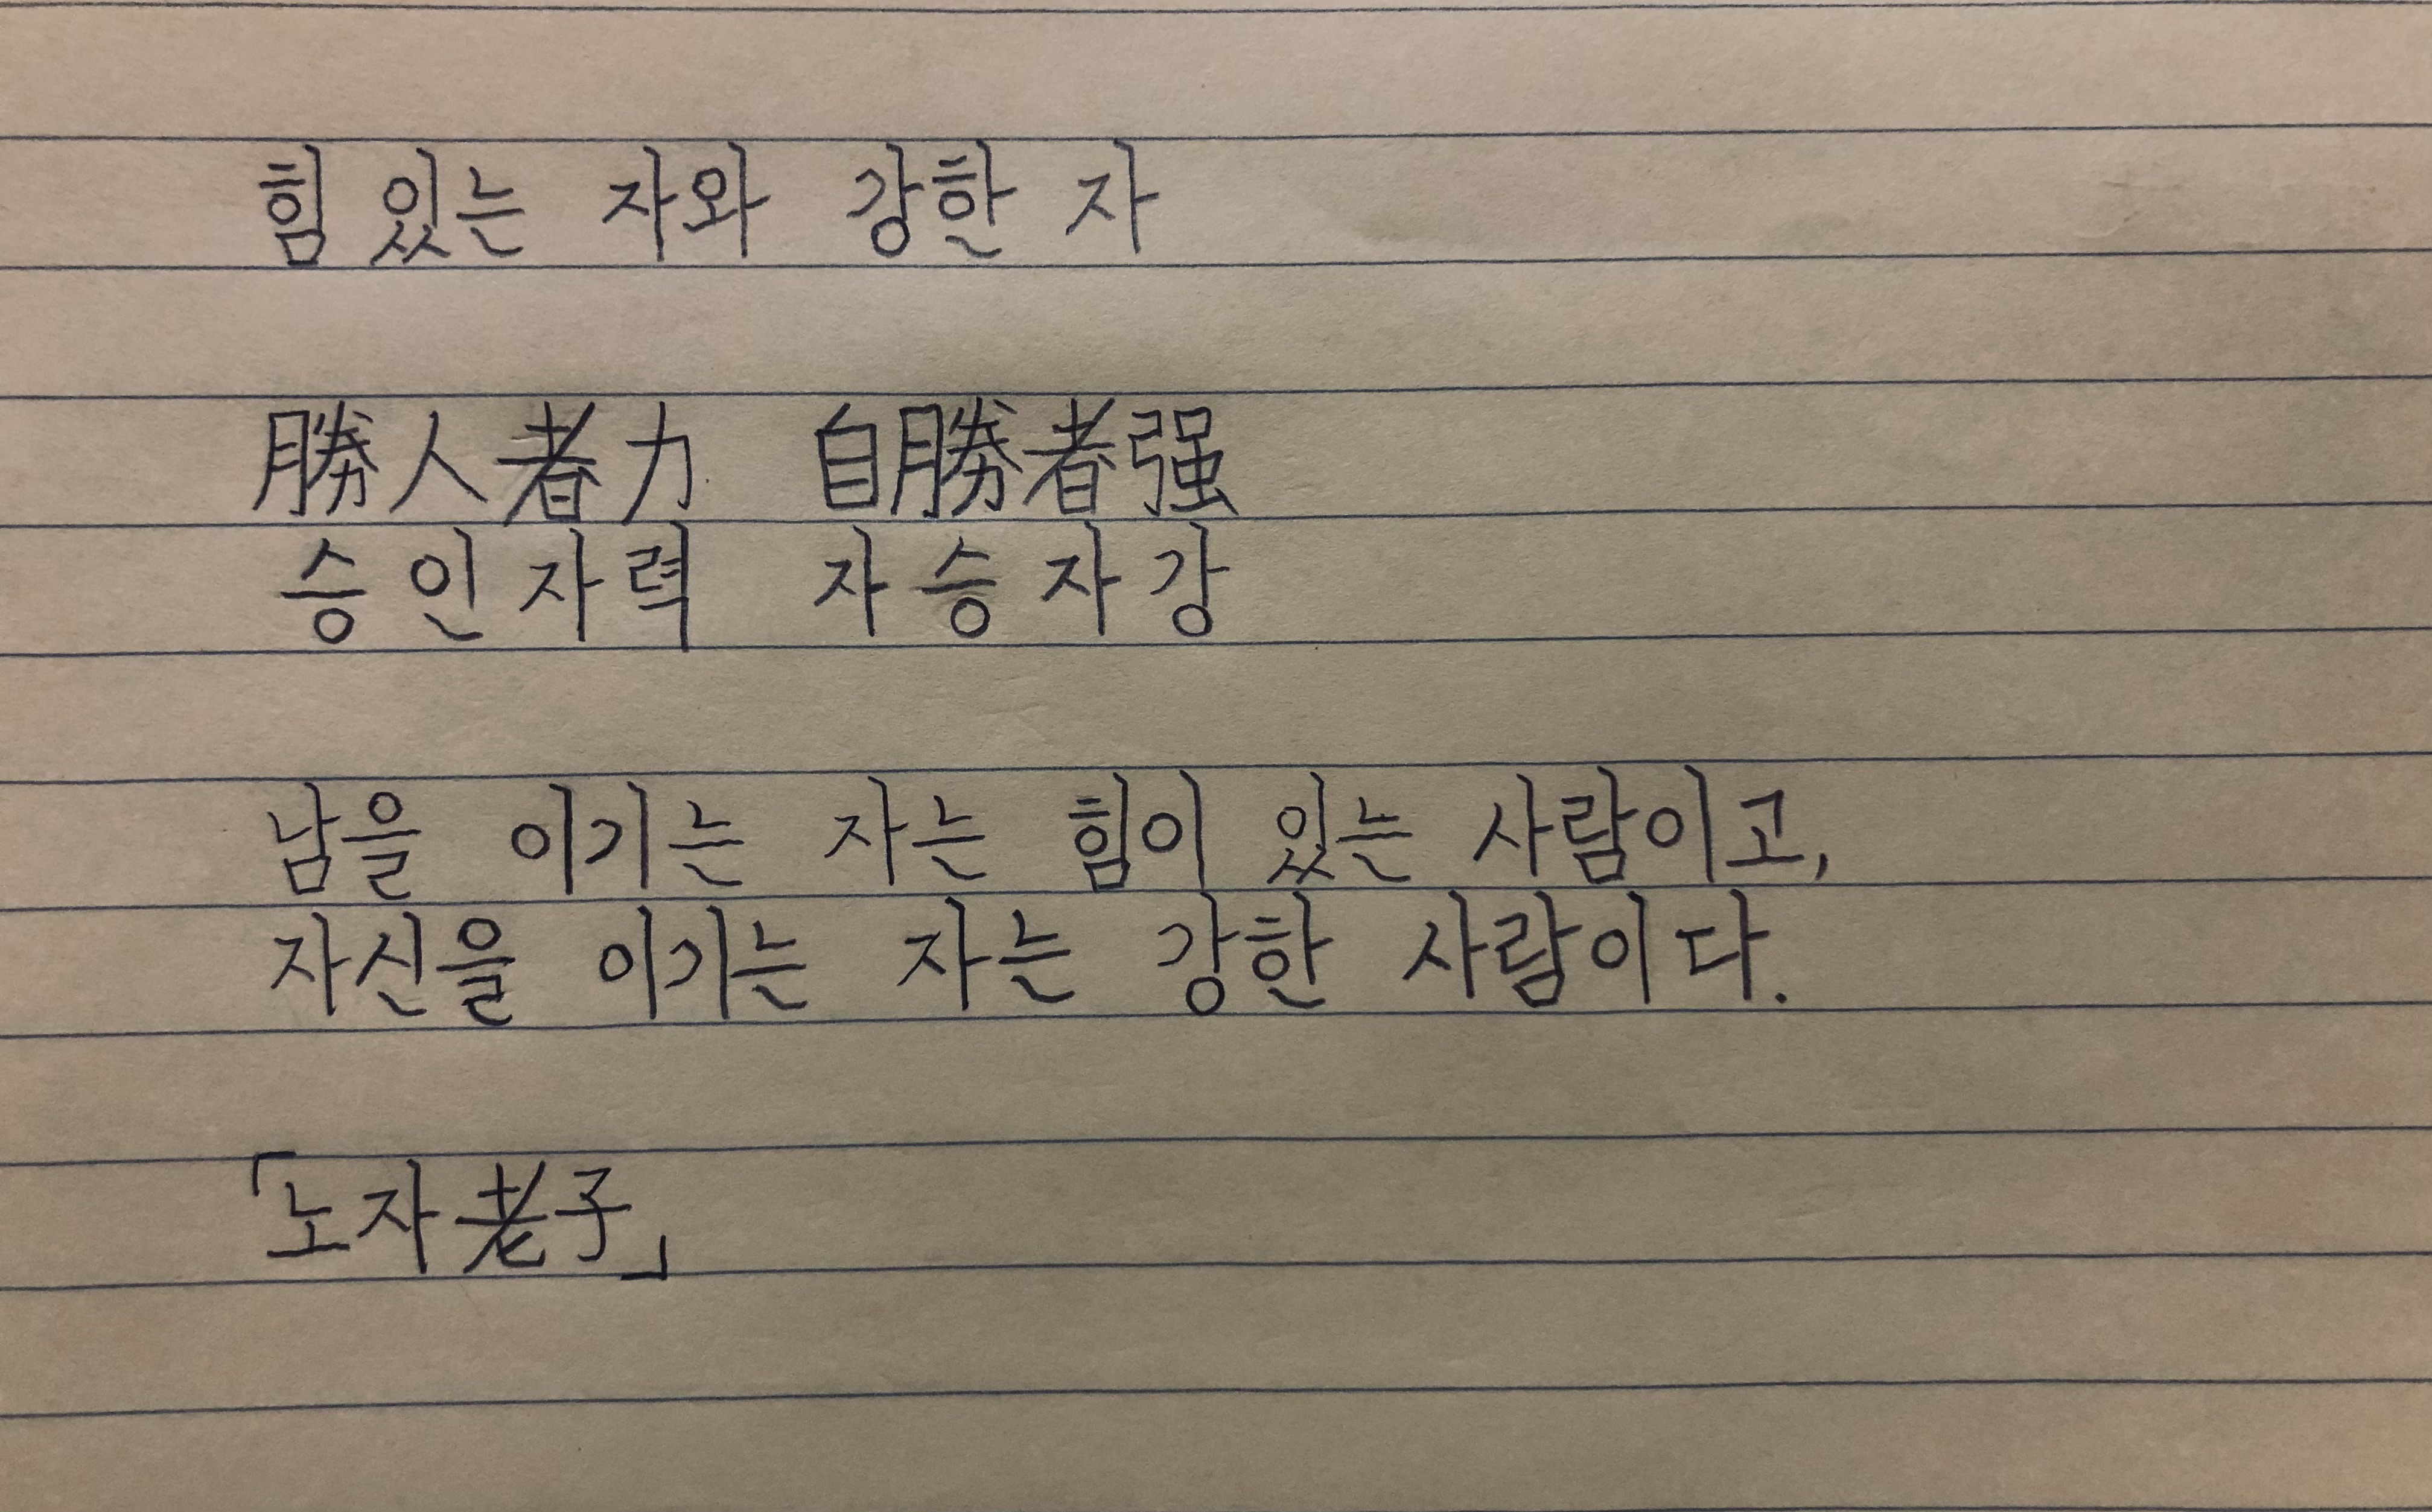 힘 있는 자와 강한 자
勝人者力 自勝者强
승인자력 자승자강
남을 이기는 자는 힘이 있는 사람이고,
자신을 이기는 자는 강한 사람이다.
「노자老子」